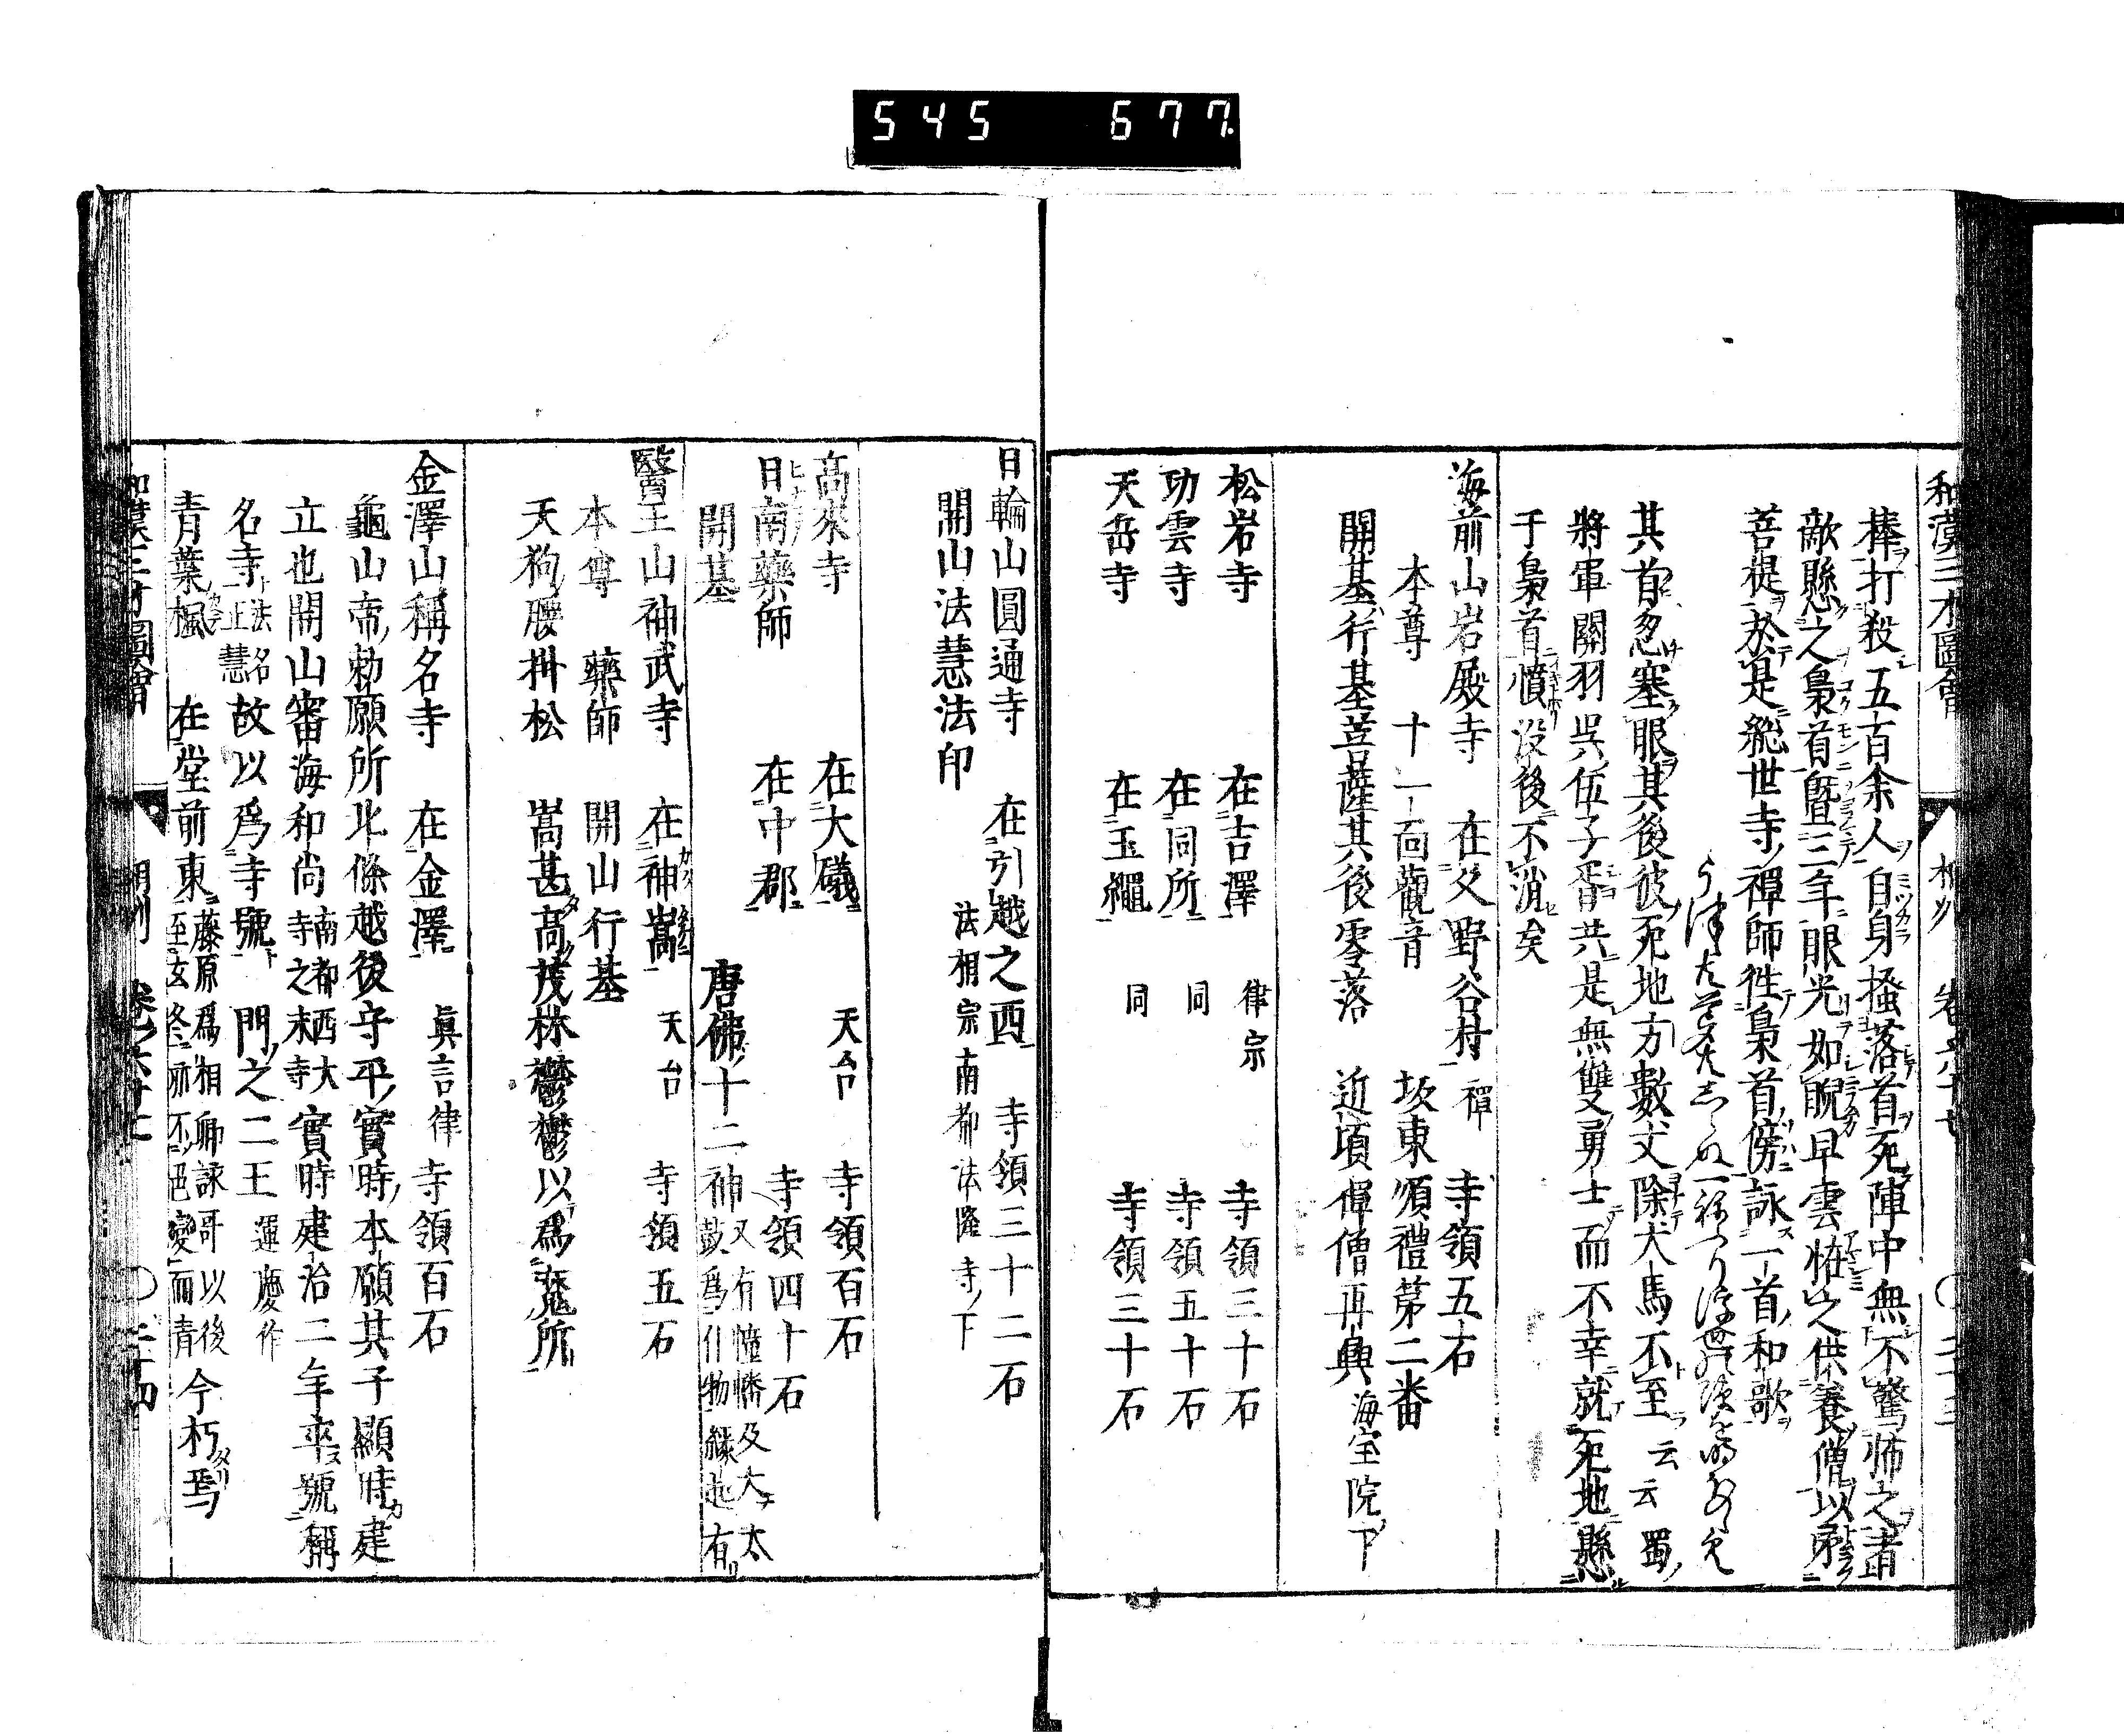 545 677
和漢三才圖會 相州 卷六十七 〇 二十三
棒打殺五百余人自身搔落首死陣中無不驚怖之者
敵懸之梟首曁三年眼光如睨早雲恠之供養僧以弔
菩提於是總世寺禪師徃梟首傍詠一首和歌
其首忽塞眼其後彼死地方數丈除犬馬不至云云蜀
將軍關羽呉伍子胥共是無雙勇士而不幸就死地懸
于梟首憤没後不消矣
海前山岩殿寺 在久野谷村 禪 寺領五石
本尊 十一面觀音 坂東順禮第二番
開基行基菩薩其後零落 近頃禪僧再興 海宝院下
松岩寺 在吉澤 律宗 寺領三十石
功雲寺 在同所 同 寺領五十石
天岳寺 在玉繩 同 寺領三十石
日輪山圓通寺 在引越之西 寺領三十二石
開山法慧法印 法相宗南都法隆寺下
高來寺 在大礒 天台 寺領百石
日南藥師 在中郡 寺領四十石
開基 唐佛十二神 又有幢幡及大太
鼓爲什物緣起有
醫王山袖武寺 在袖嵩 天台 寺領五石
本尊 藥師 開山行基
天狗腰掛松 嵩甚高茂林鬱鬱以爲魔所
金澤山稱名寺 在金澤 眞言律 寺領百石
龜山帝勅願所北條越後守平實時本願其子顯時建
立也開山審海和尚 南都西大
寺之末寺 實時建治二年卒號稱
名寺 法名
正慧 故以爲寺號 門之二王 運慶作
青葉楓 在堂前東 藤原爲相卿詠哥以後
至玄冬而不絕變而青 今朽焉
和漢三才圖會 相州 卷六十七 〇 二十四